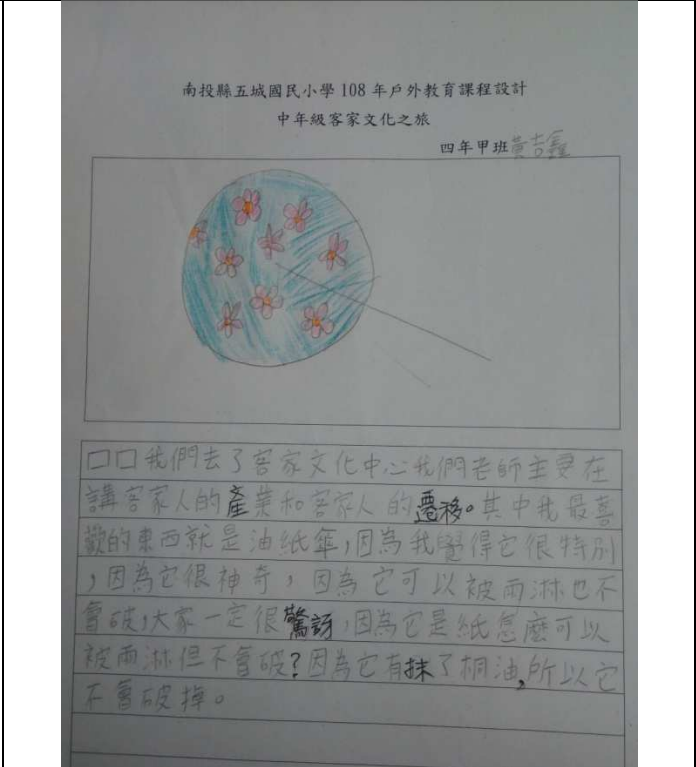 南投縣五城國民小學 108 年戶外教育課程設計
中年級客家文化之旅
四年甲班黃吉鑫
□□我們去了客家文化中心我們老師主要在
講客家人的產業和客家人的遷移。其中我最喜
歡的東西就是油紙傘,因為我覺得它很特別
,因為它很神奇,因為它可以被雨淋也不
會破,大家一定很驚訝,因為它是紙怎麼可以
被雨淋但不會破?因為它有抹了桐油,所以它
不會破掉。